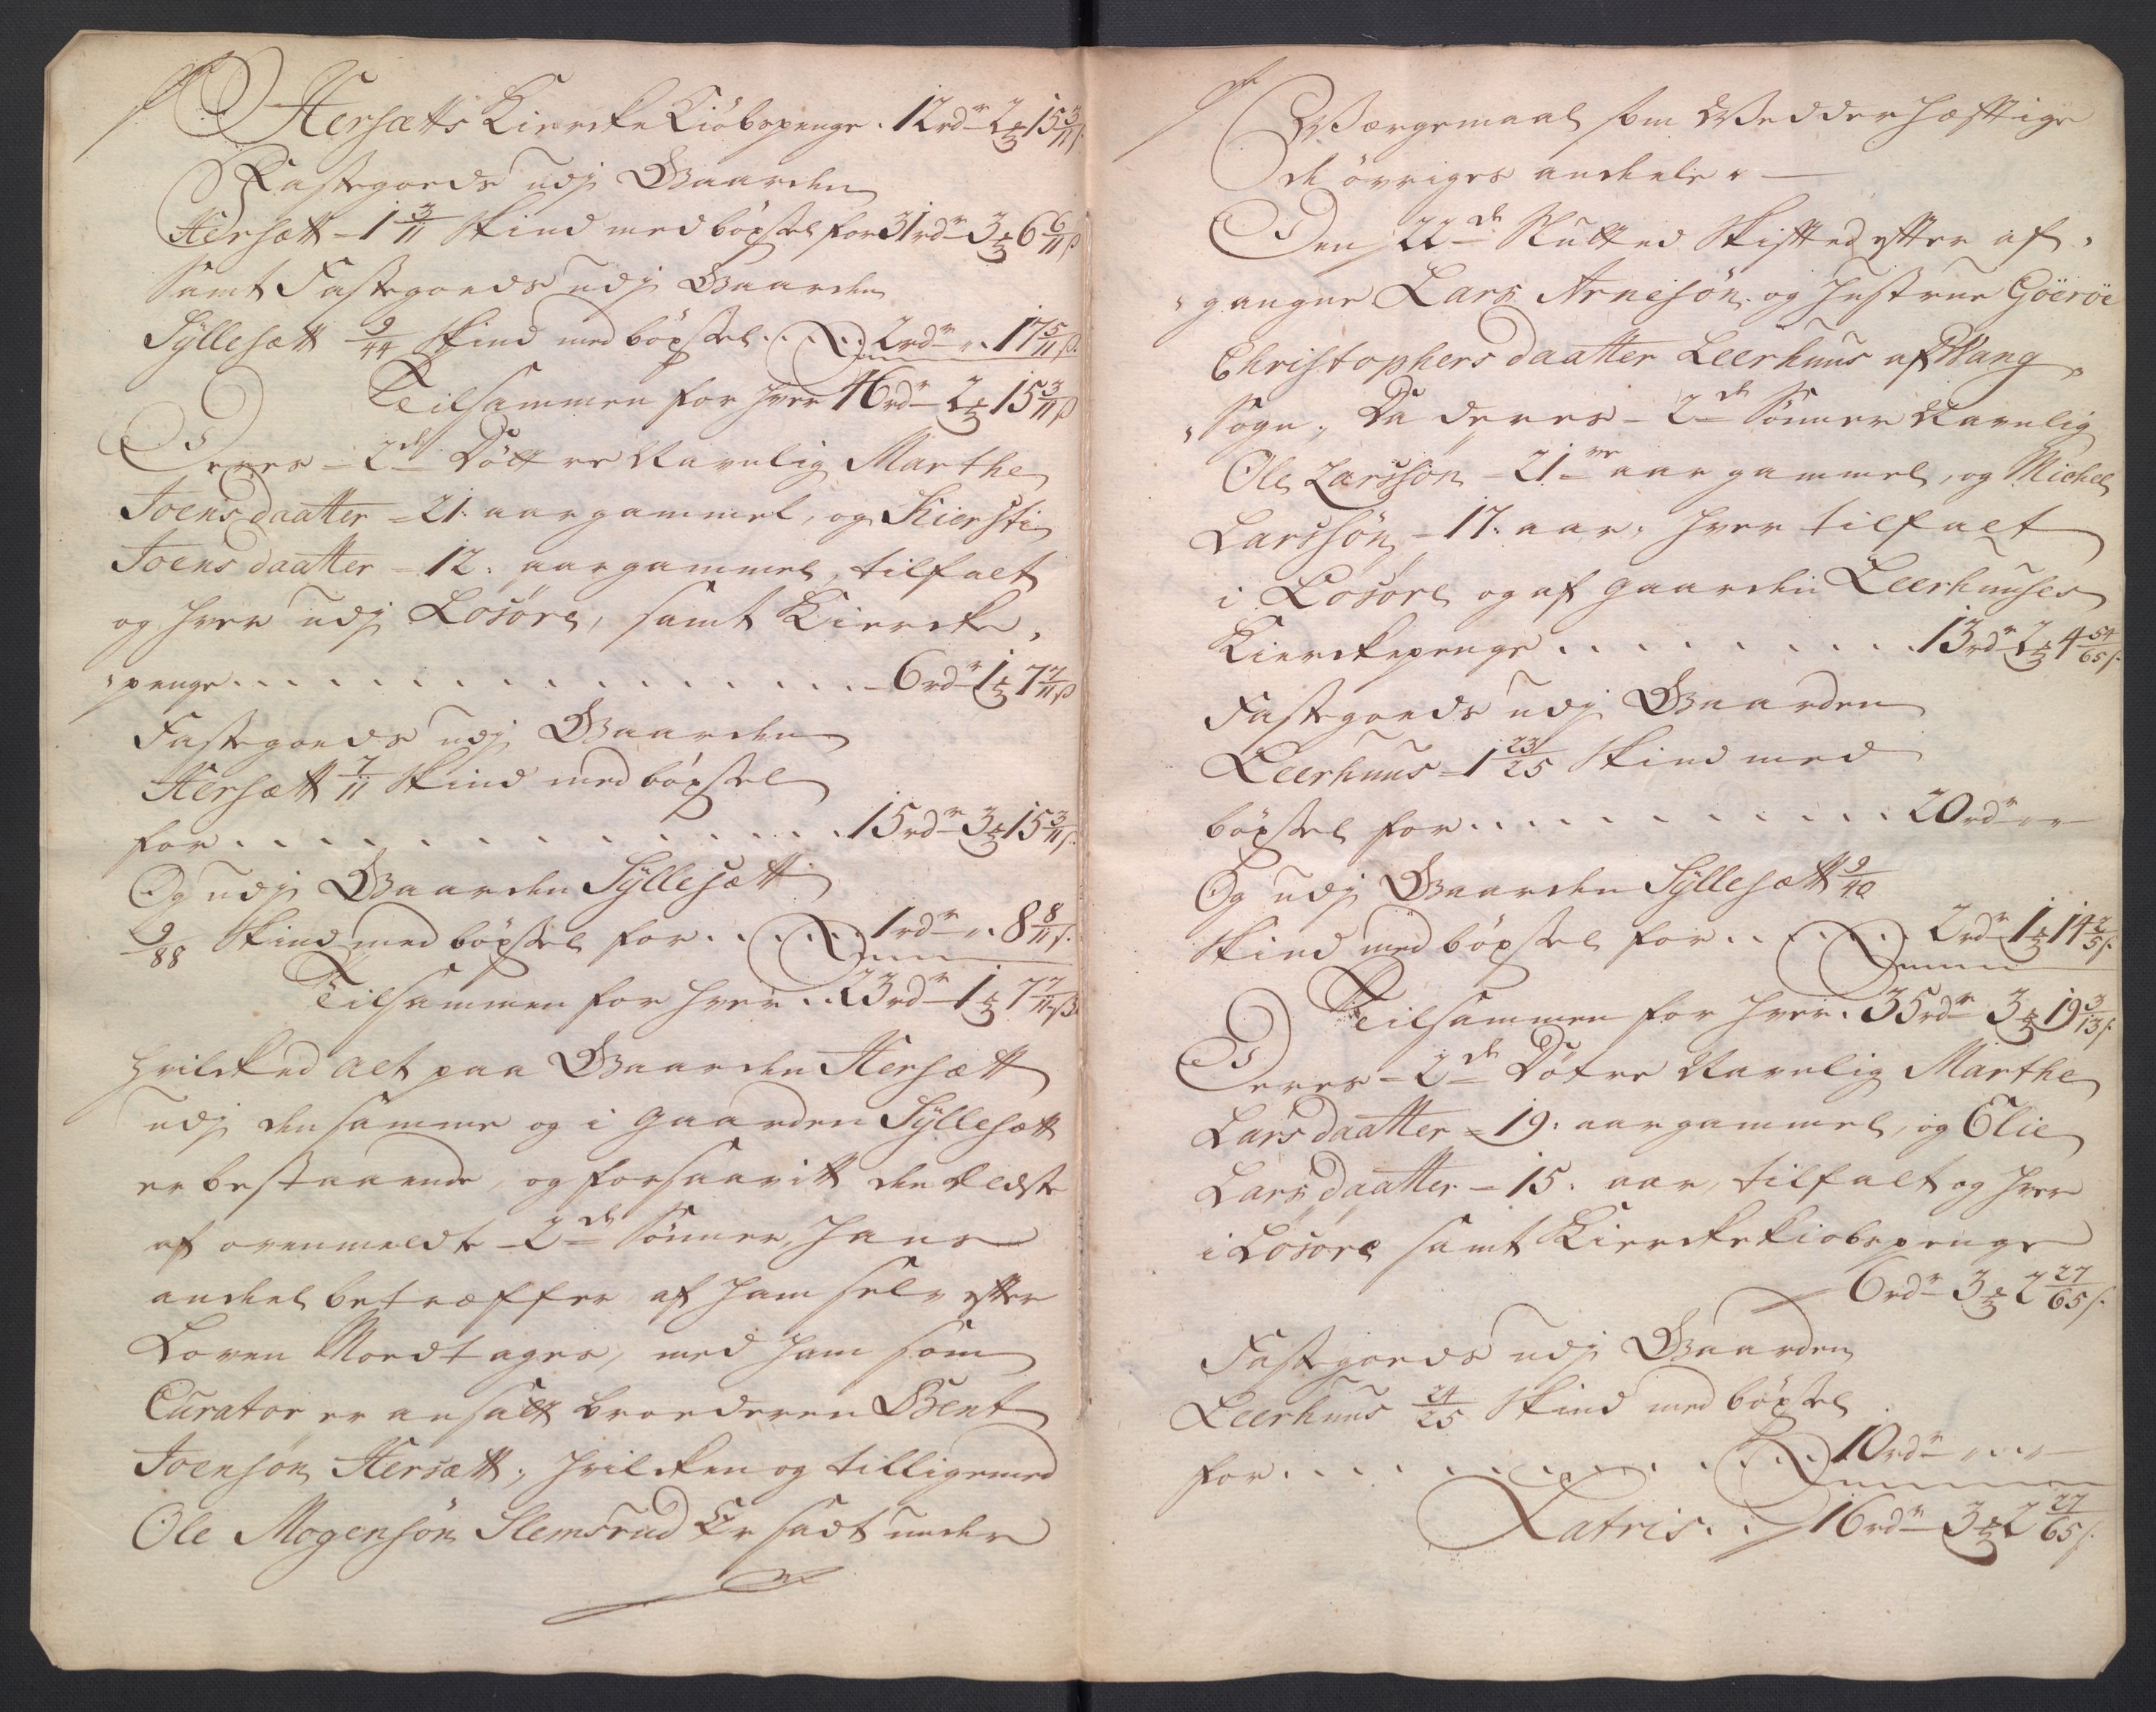 Hersætts Kiercke Kiöbspenge . 12 rdr 2 ℔ 15 3/11 s.
Fastegoeds udj Gaarden
Hersætt - 1 3/11 Skind med böxsel for 31 rdr 3 ℔ 6 6/11 s
samt Fastegoeds udj Gaarden
Syllesætt 9/44 Skind med böxsel . . . . . 2 rdr „ . 17 5/11 s.
Tilsammen for hver 46 rdr 2 ℔ 15 3/11 s
Deres - 2de Döttre Navnlig Marthe
Joensdaatter - 21. aar gammel, og Kiersti
Joensdaatter - 12. aar gammel, tilfalt
og hver udj Losöre, samt Kiercke,
„penge . . . . . . . . . . . . . . . 6 rdr 1 ℔ 7 7/11 s
Fastegoeds udj Gaarden
Hersætt 7/11 Skind med böxsel
for . . . . . . . . . . . . . . 15 rdr 3 ℔ 15 3/11 s.
Og udj Gaarden Syllesætt
9/88 Skind med böxsel for . . . . . 1 rdr „ . 8 8/11 s.
Tilsammen for hver . . 23 rdr 1 ℔ 7 7/11 s.
hvilcked alt paa Gaarden Hersætt
udj den samme og i Gaarden Syllesætt
er bestaaende, og forsaavitt den Eldste
af ovenmeldte 2de Sönner, hans
andeel betræffer af ham selv efter
Loven Modtages, med ham som
Curator er ansatt broederen Bent
Joensön Hersætt; hvilcken og tilligemed
Ole Mogensön Slemsrud Er sadt under
Værgemaal som Vedderhæfftige
de övriges andeele. —
Den 22de Slutted Skifted efter af„
„gangne Lars Arnesön og hustrue Göeröe
Christophersdaatter Leerhuus af Wang„
„Sogn; Da deres - 2de Sönner Navnlig
Ole Larssön - 21ve aar gammel, og Michel
Larssön - 17. aar, hver tilfalt
i Losöre og af gaarden Leerhuuses
Kierckepenge . . . . . . . . . 13 rdr 2 ℔ 4 54/65 s.
Fastegoeds udj Gaarden
Leerhuus - 1 23/25 Skind med
böxsel for . . . . . . . . . . . 20 rdr „ „
Og udj Gaarden Syllesætt 9/40
Skind med böxsel for . . . . . . 2 rdr 1 ℔ 14 2/5 s.
Tilsammen for hver . 35 rdr 3 ℔ 19 3/13 s.
Deres - 2de Dötre Navnlig Marthe
Larsdaatter - 19. aar gammel, og Elie
Larsdaatter - 15. aar, tilfalt og hver
i Losöre samt Kierckekiöbspenge
6 rdr 3 ℔ 2 27/65 s.
Fastegoeds udj Gaarden
Leerhuus 24/25 Skind med böxsel
for . . . . . . . . . . . . . 10 rdr „ „
Latris . . 16 rdr 3 ℔ 2 27/65 s.